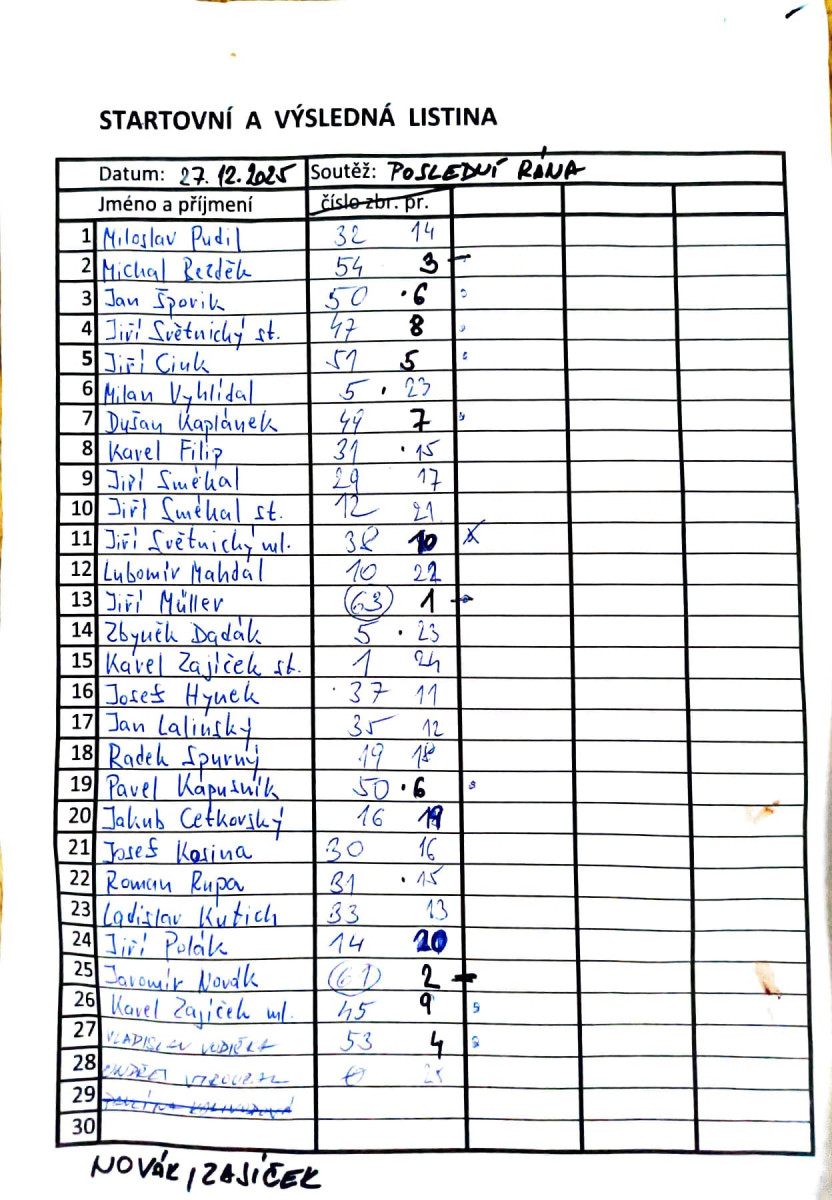 STARTOVNÍ A VÝSLEDNÁ LISTINA
Datum: 27.12.2025 Soutěž: POSLEDNÍ RÁNA
Jméno a příjmení číslo zbr. pr.
1 Miloslav Pudil 32 14
2 Michal Bezděk 54 3
3 Jan Šporik 50 6
4 Jiří Světnický st. 47 8
5 Jiří Ciuk 51 5
6 Milan Vyhlídal 5 23
7 Dušan Kaplánek 49 7
8 Karel Filip 31 15
9 Jiří Směkal 29 17
10 Jiří Směkal st. 12 21
11 Jiří Světnický ml. 38 10
12 Lubomír Mahdal 10 22
13 Jiří Müller 63 1
14 Zbyněk Dadák 5 23
15 Karel Zajíček st. 1 24
16 Josef Hynek 37 11
17 Jan Lalinský 35 12
18 Radek Spurný 19 18
19 Pavel Kapusník 50 6
20 Jakub Cetkovský 16 19
21 Josef Kosina 30 16
22 Roman Rupa 31 15
23 Ladislav Kutich 33 13
24 Jiří Polák 14 20
25 Jaromír Novák 61 2
26 Karel Zajíček ml. 45 9
27 VLADISLAV VODIČKA 53 4
28 ONDŘEJ 0 25
29
30
NOVÁK, ZAJÍČEK